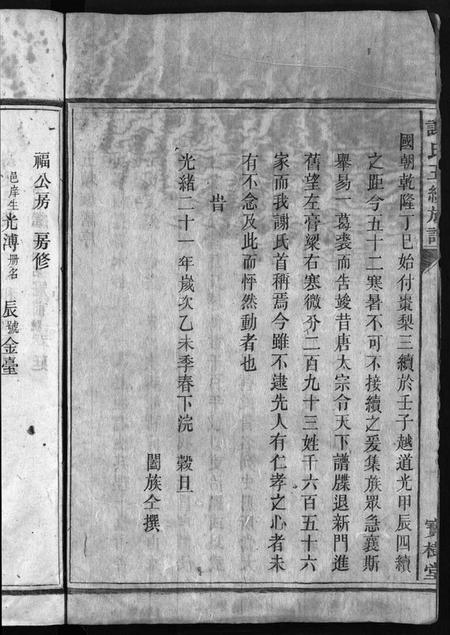 謝氏五續族譜
寶樹堂
國朝乾隆丁巳始付棗梨三續於壬子越道光甲辰四續
之距今五十二寒暑不可不接續之爰集族眾急襄斯
舉易一葛裘而告竣昔唐太宗令天下譜牒退新門進
舊望左膏粱右寒微分二百九十三姓千六百五十六
家而我謝氏首稱焉今雖不逮先人有仁孝之心者未
有不念及此而怦然動者也
旹
光緒二十一年歲次乙未季春下浣 穀旦
闔族仝撰
福公房 房修
邑庠生光溥冊名 辰號金臺